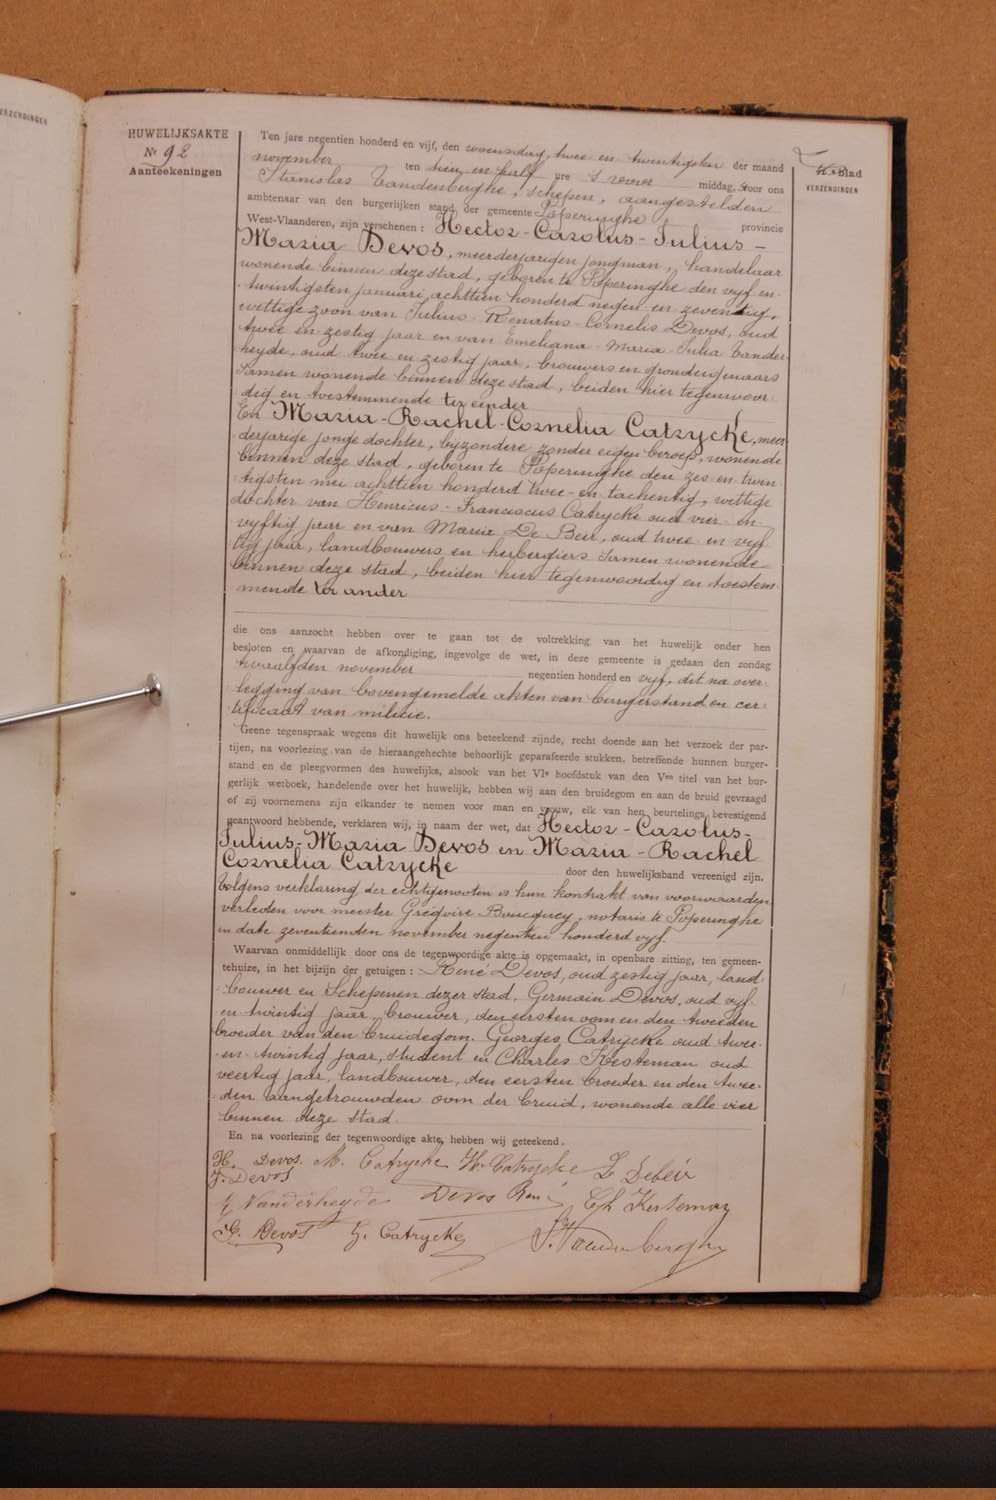 VERZENDINGEN
HUWELIJKSAKTE
Nr 92
Aanteekeningen
Blad
VERZENDINGEN
Ten jare negentien honderd en vijf, den woensdag, twee en twintigsten der maand
november ten tien en half ure 's voor middag, voor ons
Stanislas Vandenberghe, schepen, aangestelden
ambtenaar van den burgerlijken stand der gemeente Poperinghe provincie
West-Vlaanderen, zijn verschenen: Hector-Carolus-Julius-
Maria Devos, meerderjarigen jongman, handelaar
wonende binnen deze stad, geboren te Poperinghe den vyf en
twintigsten januari achttien honderd negen en zeventig,
wettige zoon van Julius-Renatus-Cornelis Devos, oud
twee en zestig jaar en van Emeliana-Maria-Julia Vander-
heyde, oud twee en zestig jaar, brouwers en grondeigenaars
samen wonende binnen deze stad, beiden hier tegenwoor-
dig en toestemmende ter eender
En Maria-Rachel-Cornelia Catrycke, meer
derjarige jonge dochter, byzondere zonder eigen beroep, wonende
binnen deze stad, geboren te Poperinghe den zes en twin-
tigsten mei achttien honderd twee en tachentig, wettige
dochter van Henricus-Franciscus Catrycke oud vier en
vyftig jaar en van Marie De Beir, oud twee en vyf
tig jaar, landbouwers en herbergiers samen wonende
binnen deze stad, beiden hier tegenwoordig en toestem-
mende ter ander
die ons aanzocht hebben over te gaan tot de voltrekking van het huwelijk onder hen
besloten en waarvan de afkondiging, ingevolge de wet, in deze gemeente is gedaan den zondag
twaalfden november negentien honderd en vyf, dit na over-
legging van bovengemelde akten van burgerstand en cer-
tificaat van milicie.
Geene tegenspraak wegens dit huwelijk ons beteekend zijnde, recht doende aan het verzoek der par-
tijen, na voorlezing van de hieraangehechte behoorlijk geparafeerde stukken, betreffende hunnen burger-
stand en de pleegvormen des huwelijks, alsook van het VIe hoofdstuk van den Ven titel van het bur-
gerlijk wetboek, handelende over het huwelijk, hebben wij aan den bruidegom en aan de bruid gevraagd
of zij voornemens zijn elkander te nemen voor man en vrouw, elk van hen beurtelings bevestigend
geantwoord hebbende, verklaren wij, in naam der wet, dat Hector-Carolus-
Julius-Maria Devos en Maria-Rachel
Cornelia Catrycke door den huwelijksband vereenigd zijn.
Volgens verklaring der echtgenooten is hun kontrakt van voorwaarden
verleden voor meester Gregoire Boucquey, notaris te Poperinghe
in date zeventienden november negentien honderd vyf.
Waarvan onmiddellijk door ons de tegenwoordige akte is opgemaakt, in openbare zitting, ten gemeen-
tehuize, in het bijzijn der getuigen: René Devos, oud zestig jaar, land-
bouwer en Schepenen dezer stad, Germain Devos, oud vyf
en twintig jaar, brouwer, den eersten oom en den tweeden
broeder van den bruidegom. Georges Catrycke oud twee-
en twintig jaar, student en Charles Kesteman oud
veertig jaar, landbouwer, den eersten broeder en den twee-
den aangetrouwden oom der bruid, wonende alle vier
binnen deze stad
En na voorlezing der tegenwoordige akte, hebben wij geteekend.
H. Devos. M. Catrycke H. Catrycke L Debeir
J. Devos
E Vanderheyde Devos René Ch Kesteman
G. Devos G. Catrycke S. Vandenberghe